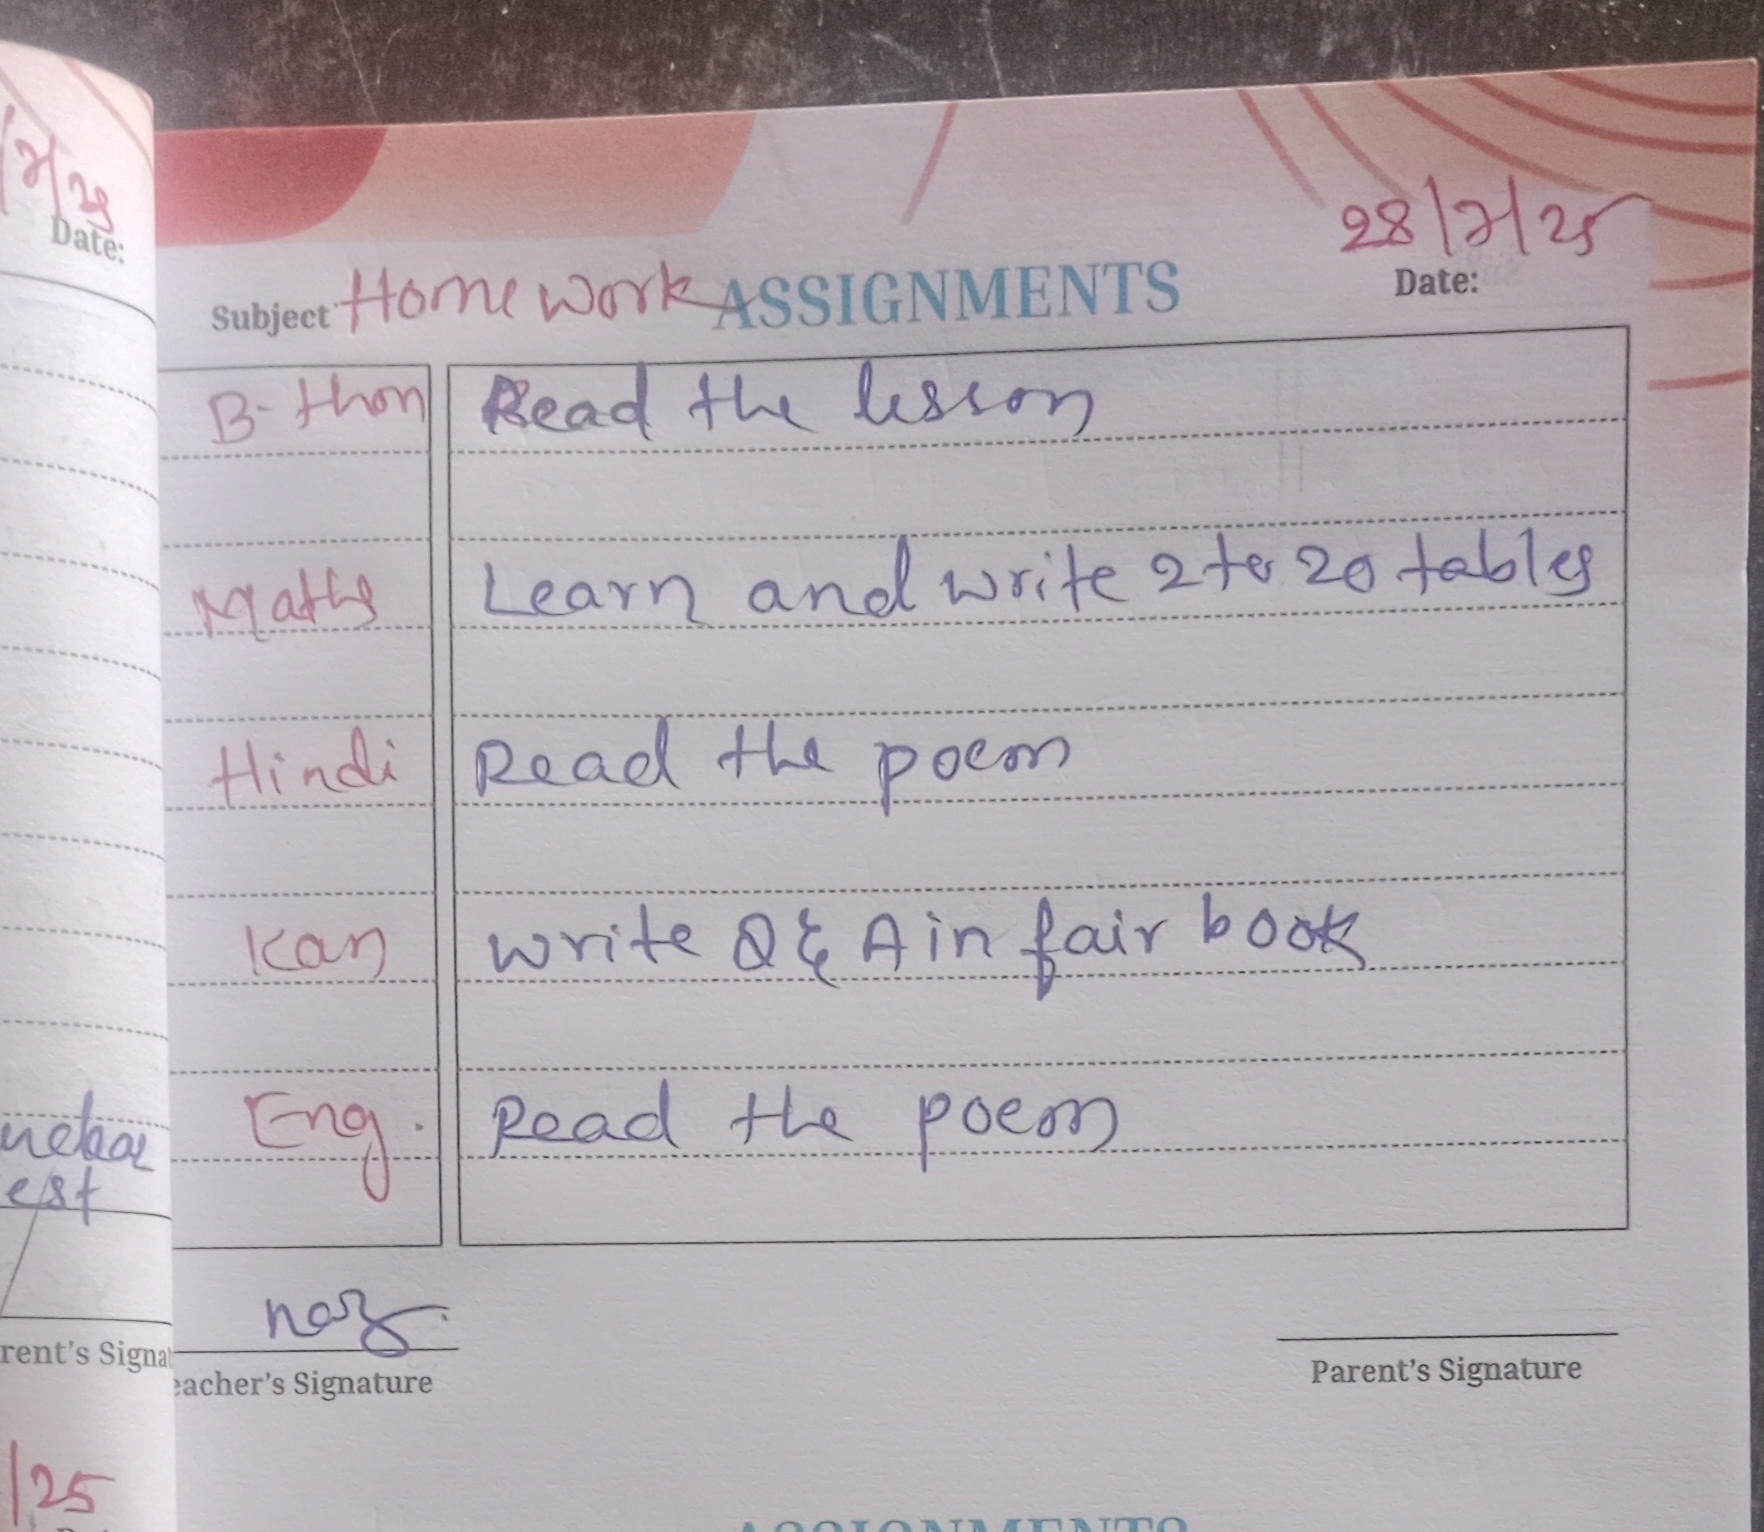 28/7/25
Date:
Subject Home work ASSIGNMENTS
B-thon Read the lesson
Maths Learn and write 2 to 20 tables
Hindi Read the poem
Kan write Q & A in fair book
Eng. Read the poem
Teacher's Signature
Parent's Signature
Date:
est
rent's Signat
/25
ASSIGNMENTS